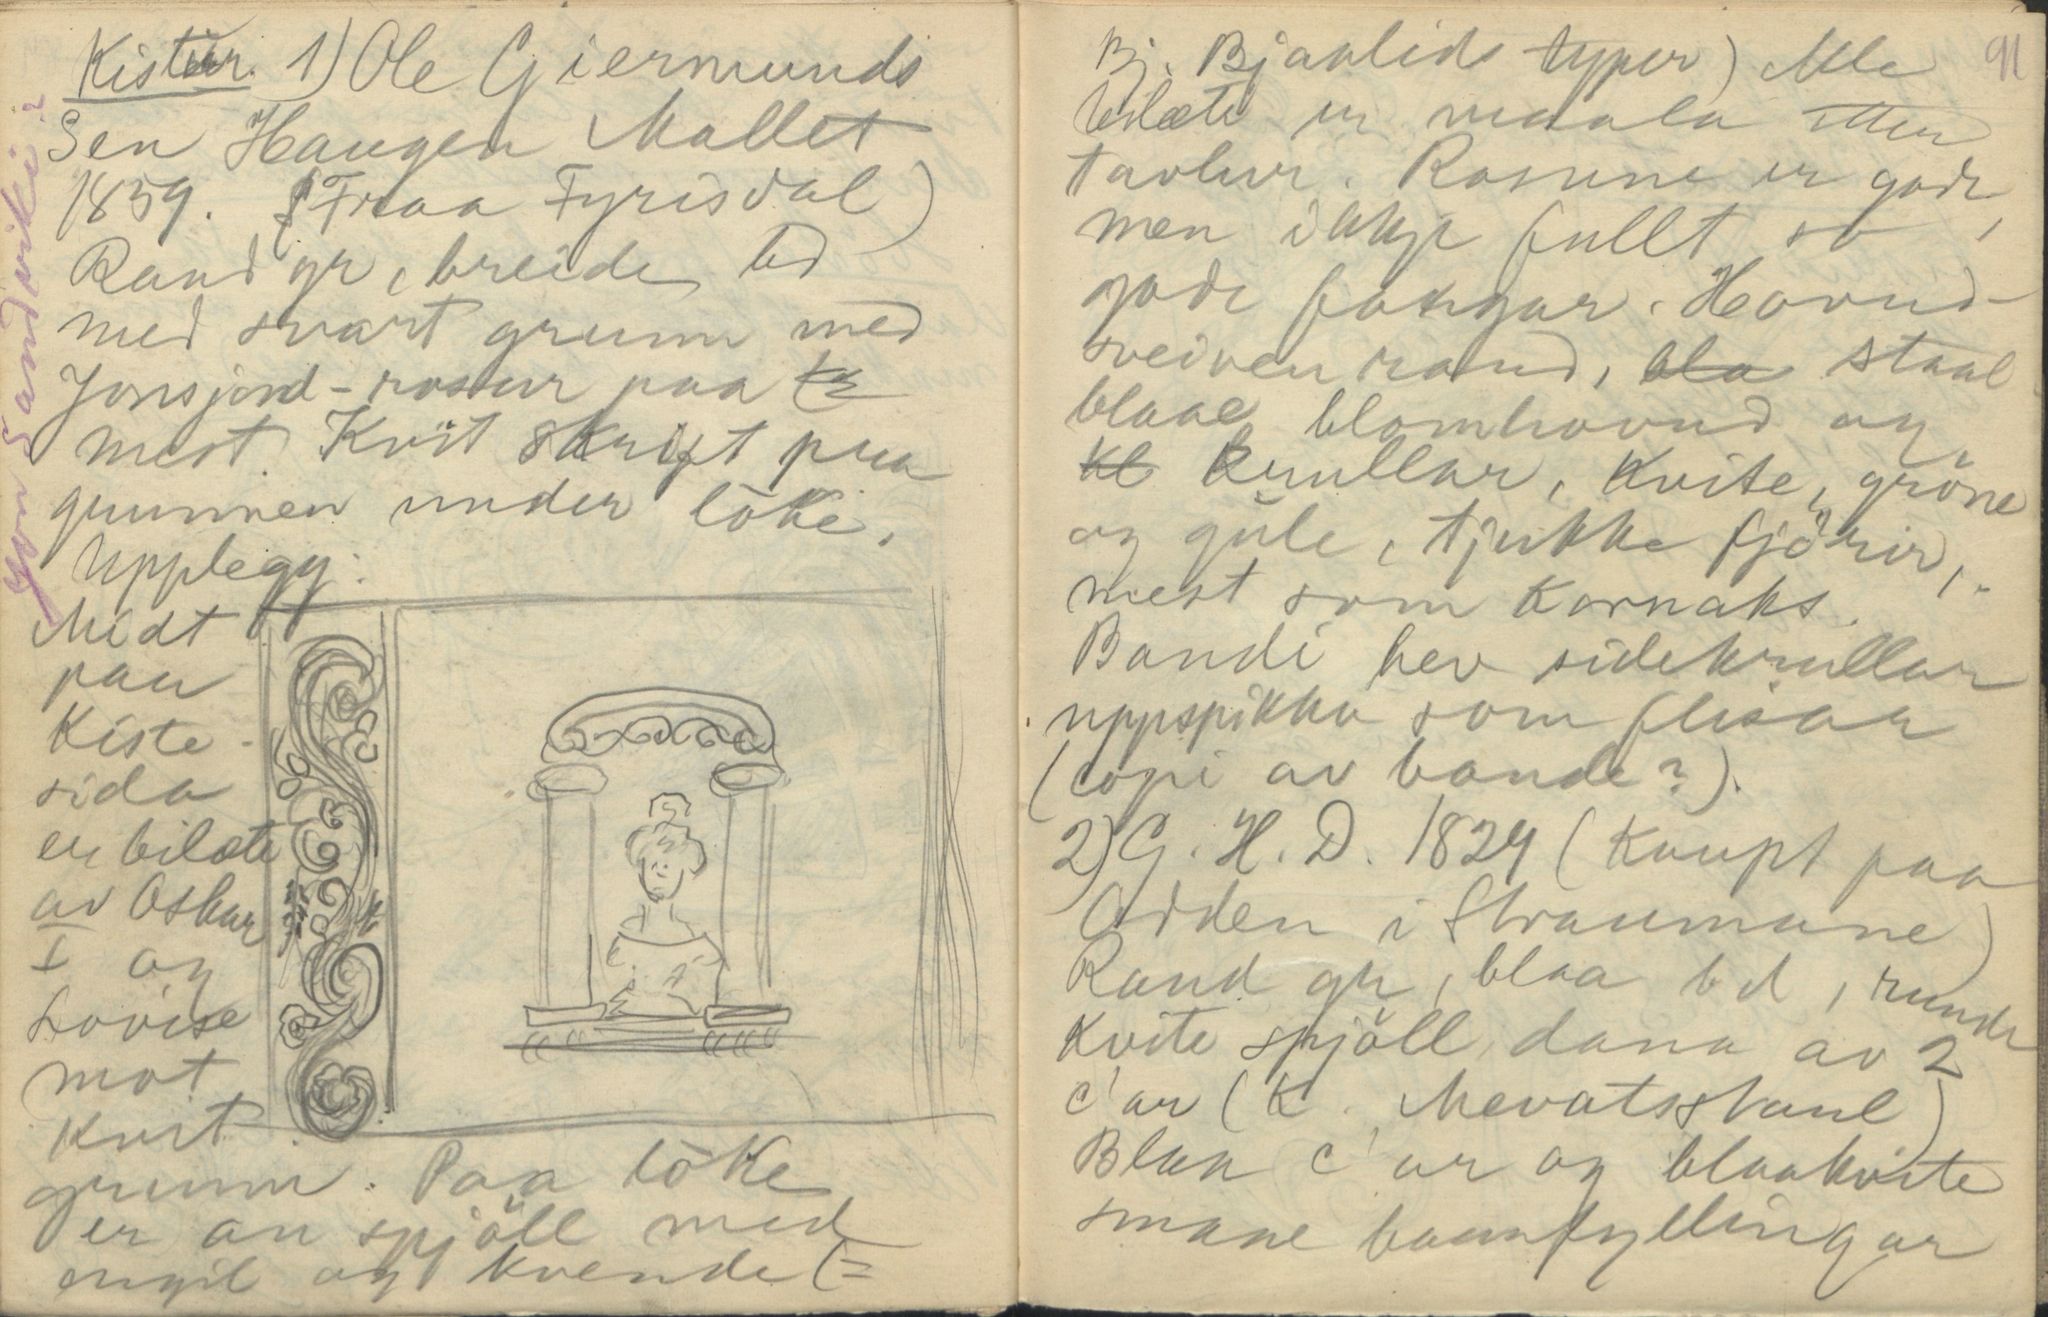 Kistur. 1) Ole Giermunds
Sen Haugen Mallet
1859. (Fraa Fyrisdal)
Raud gr, breide bd
med svart grunn med
Jonsjord-rosur paa
mest. Kvit skrift paa
grunnen under lòke.
Upplegg:
Midt
paa
kiste-
sida
er bilæte
av Oskar
I og
Lovise
mot
kvit
grunn. Paa lòke
er au spjöll med
engil og kvende (=
Jon Sandviki?
91
Bj. Bjaalids typer) Alle
bilæte er maala etter
tavlur. Rosune er gode,
men ikkje fullt so
gode fargar. Hovud-
sveiven raud, bla staal
blaae blomhovud og
kl krullar, kvite, gröne
og gule, tjukke fjörir,
mest som kornaks.
Bandi hev sidekrullar
uppspikka som flisar
(copi av bande?).
2) G. H. D. 1829 (Kaupt paa
Odden i Straumane)
Raud gr, blaa bd, runde
kvite spjöll dana av 2
c'ar (K. Mevatsstaul)
Blaa c'ar og blaakvite
smaae baunfyllingar